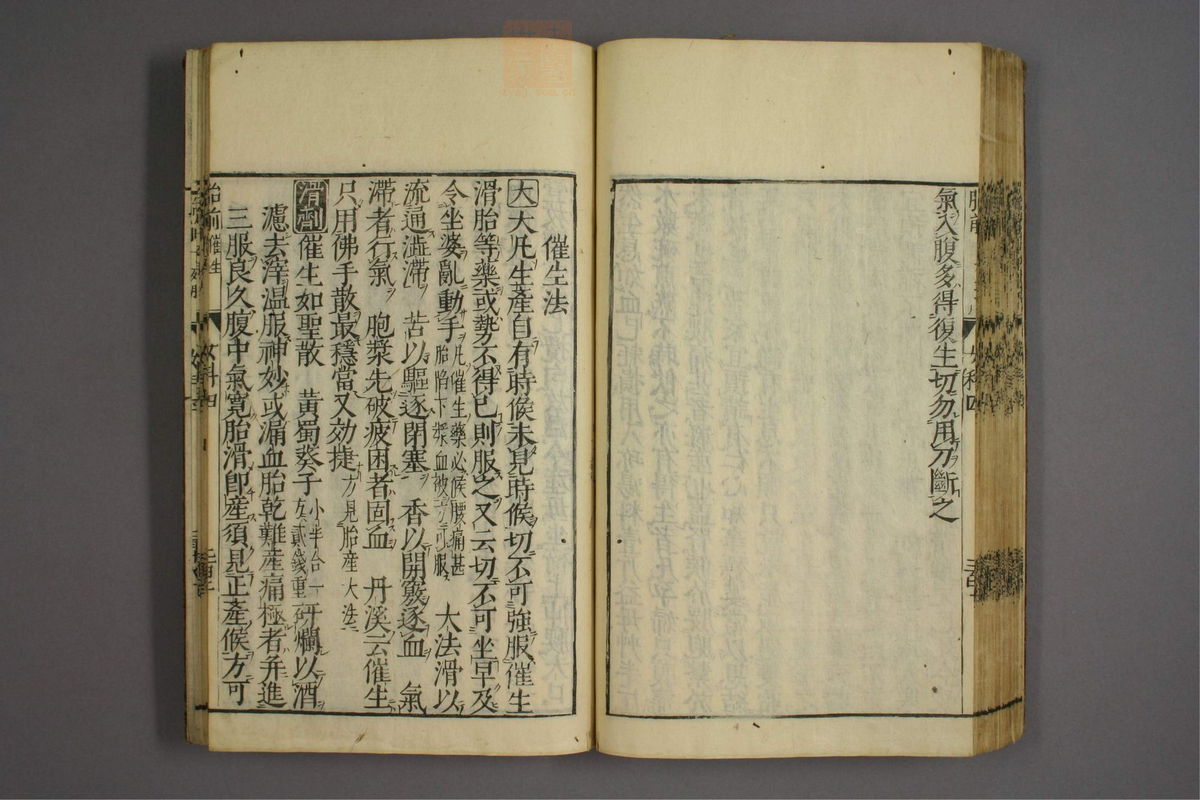 氣入腹多得復生切勿用刀斷之
催生法
大大凡生產自有時候未見時候切不可強服催生
滑胎等藥或勢不得已則服之又云切不可坐早及
令坐婆亂動手凡催生藥必候腰痛甚胎陷下漿血破方可服大法滑以
流通澁滯苦以驅逐閉塞香以開竅逐血氣
滯者行氣胞漿先破疲困者固血丹溪云催生
只用佛手散最穩當又効捷方見胎產大法
滑劑催生如聖散黃蜀葵子小半合一云貳錢重研爛以酒
濾去滓温服神妙或漏血胎乾難產痛極者并進
三服良久腹中氣寬胎滑即產須見正產候方可
胎前催生
女科四